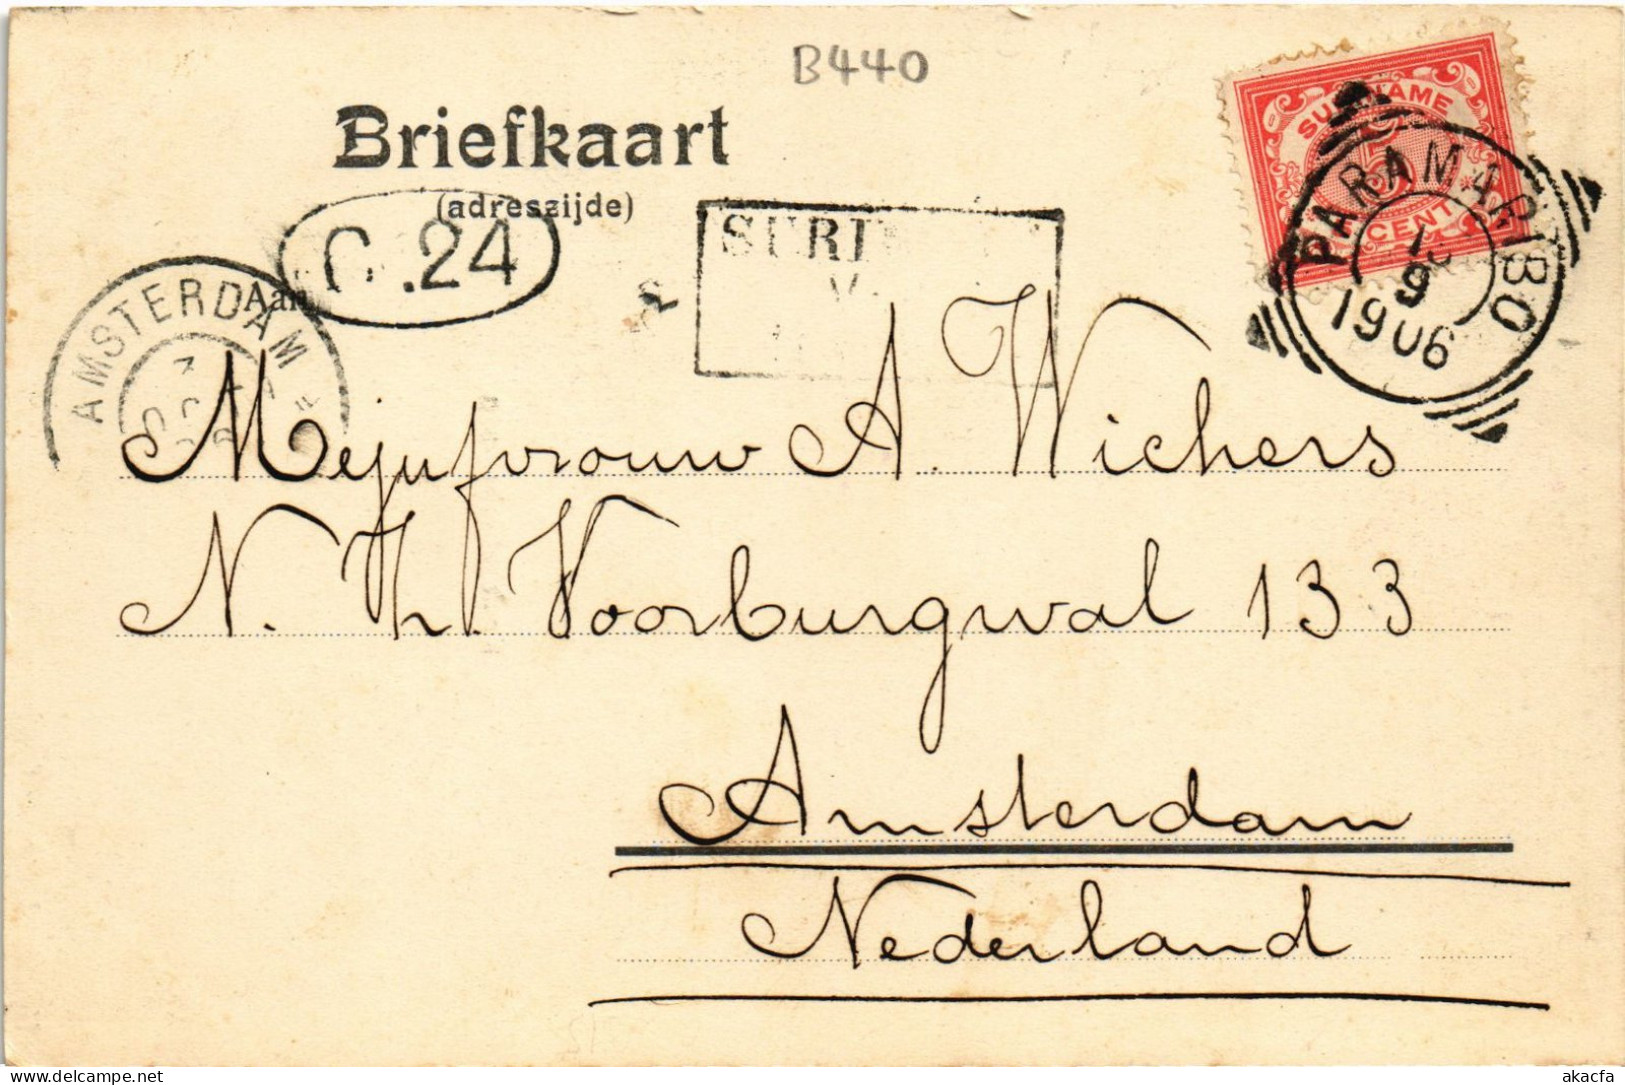 B440
Briefkaart
(adreszijde)
SURINAME
5
CENT
PARAMARIBO
9
1906
24
SURI
Aan
AMSTERDAM
Mejufvrouw A. Wichers
N. Z. Voorburgwal 133
Amsterdam
Nederland
akacfa